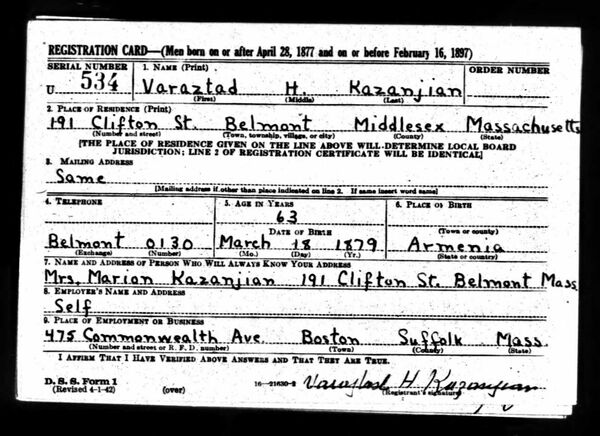 REGISTRATION CARD—(Men born on or after April 28, 1877 and on or before February 16, 1897)
SERIAL NUMBER 1. NAME (Print) ORDER NUMBER
U 534 Varaztad H. Kazanjian
(First) (Middle) (Last)
2. PLACE OF RESIDENCE (Print)
191 Clifton St. Belmont Middlesex Massachusetts
(Number and street) (Town, township, village, or city) (County) (State)
[THE PLACE OF RESIDENCE GIVEN ON THE LINE ABOVE WILL DETERMINE LOCAL BOARD
JURISDICTION; LINE 2 OF REGISTRATION CERTIFICATE WILL BE IDENTICAL]
3. MAILING ADDRESS
Same
[Mailing address if other than place indicated on line 2. If same insert word same]
4. TELEPHONE 5. AGE IN YEARS 6. PLACE OF BIRTH
63
DATE OF BIRTH (Town or county)
Belmont 0130 March 18 1879 Armenia
(Exchange) (Number) (Mo.) (Day) (Yr.) (State or country)
7. NAME AND ADDRESS OF PERSON WHO WILL ALWAYS KNOW YOUR ADDRESS
Mrs. Marion Kazanjian 191 Clifton St. Belmont Mass
8. EMPLOYER'S NAME AND ADDRESS
Self
9. PLACE OF EMPLOYMENT OR BUSINESS
475 Commonwealth Ave. Boston Suffolk Mass.
(Number and street or R. F. D. number) (Town) (County) (State)
I AFFIRM THAT I HAVE VERIFIED ABOVE ANSWERS AND THAT THEY ARE TRUE.
D. S. S. Form 1
(Revised 4-1-42) (over) 16—21630-2 Varaztad H. Kazanjian
(Registrant's signature)